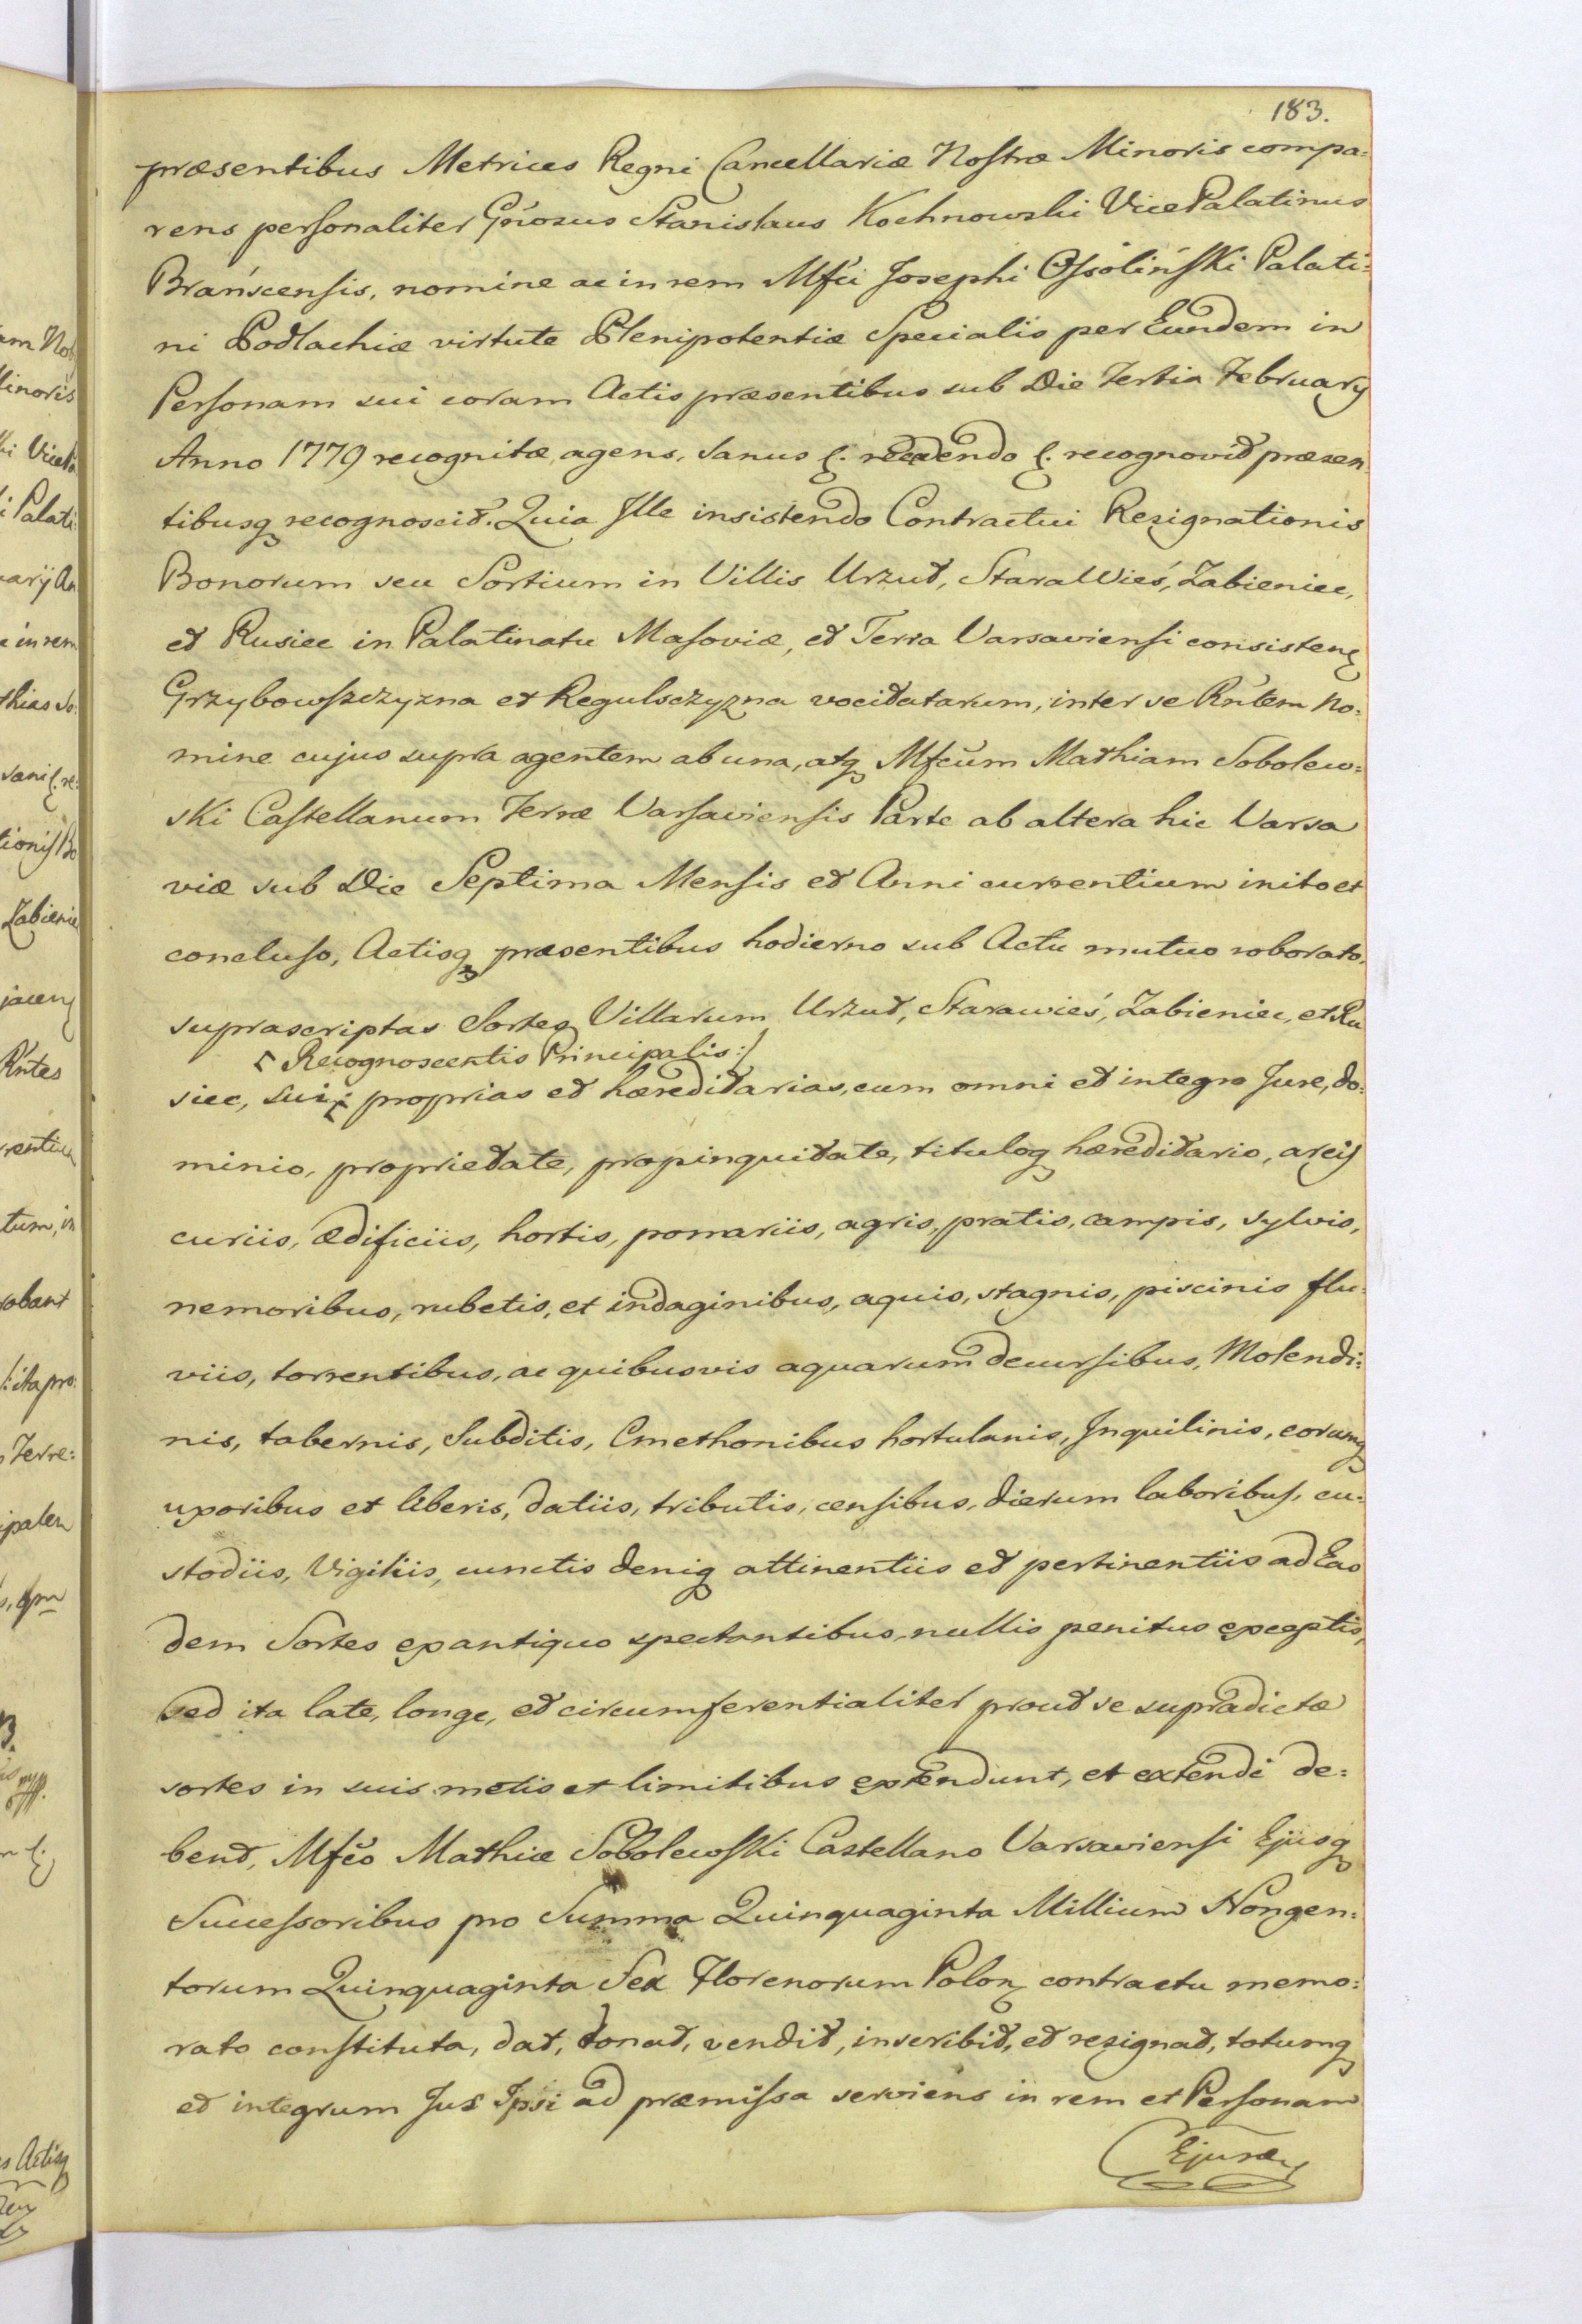 183.
præsentibus Metrices Regni Cancellariæ Nostræ Minoris compa:
rens personaliter Gnosus Stanislaus Kochnowski VicePalatinus
Branscensis, nomine ac in rem Mfci Josephi Ossoliński Palati:
ni Podlachiæ virtute Plenipotentiæ Specialis per Eundem in
Personam sui coram Actis præsentibus sub Die Tertia February
Anno 1779 recognitæ, agens, Sanus &. recedendo &. recognovit præsen
tibusq recognoscit. Quia Ille insistendo Contractui Resignationis
Bonorum seu Sortium in Villis Urzut, StaraWieś, Zabieniec,
et Rusiec in Palatinatu Masoviæ, et Terra Varsaviensi consisten
Grzybowszczyzna et Regulsczyzna vocitatarum, inter se Rntem no:
mine cujus supra agentem ab una, atq Mfcum Mathiam Sobolew:
ski Castellanum Terræ Varsaviensis Parte ab altera hic Varsa
viæ sub Die Septima Mensis et Anni currentium inito et
concluso, Actisq præsentibus hodierno sub Actu mutuo roborato,
suprascriptas Sortes Villarum Urzut, Starawieś, Zabieniec, et Ru
Recognoscentis Principalis:/
siec, sui proprias et hæreditarias, cum omni et integro Jure, do:
minio, proprietate, propinquitate, tituloq hæreditario, areis
curiis, ædificiis, hortis, pomariis, agris, pratis, campis, sylvis,
nemoribus, rubetis, et indaginibus, aquis, stagnis, piscinis flu:
viis, torrentibus, ac quibusvis aquarum decursibus, Molendi:
nis, tabernis, Subditis, Cmethonibus hortulanis, Inquilinis, eorumq
uxoribus et liberis, datiis, tributis, censibus, dierum laboribus, cu:
stodiis, Vigiliis, cunctis deniq attinentiis et pertinentiis ad Eas
dem Sortes ex antiquo spectantibus, nullis penitus exceptis,
sed ita late, longe, et circumferentialiter prout se supradictæ
sortes in suis metis et limitibus extendunt, et extendi de:
bent, Mfco Mathiæ Sobolewski Castellano Varsaviensi Ejusq
Successoribus pro Summa Quinquaginta Millium Nongen:
torum Quinquaginta Sex Florenorum Polon contractu memo:
rato constituta, dat, donat, vendit, inscribit, et resignat, totumq
et integrum Jus Ipsi ad præmissa serviens in rem et Personam